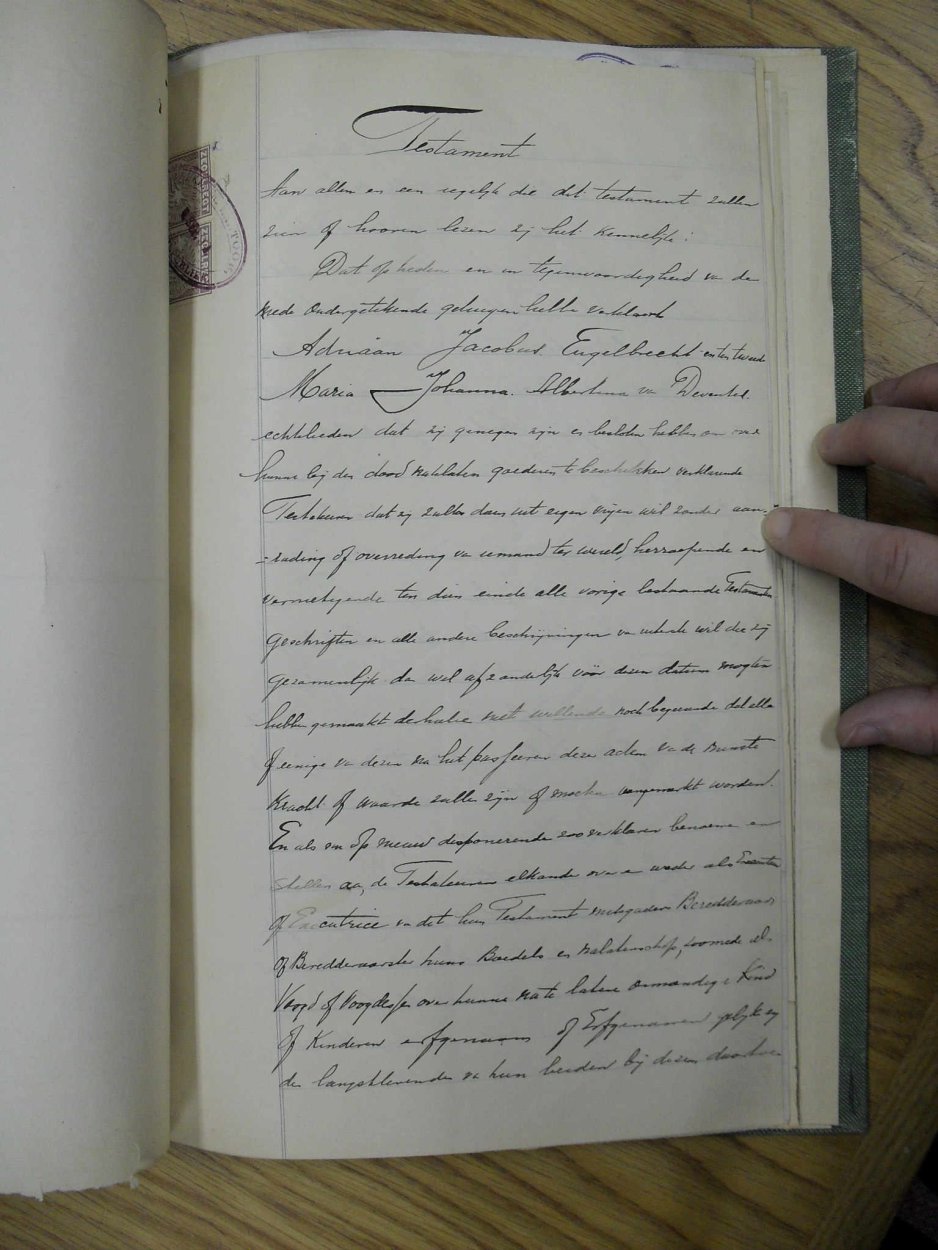 Testament
Aan allen en een iegelijk die dit testament zullen
zien of hooren lezen zij het kennelijk:
Dat op heden en in tegenwoordigheid van de
mede ondergetekende getuigen hebben verklaard
Adriaan Jacobus Engelbrecht en ten tweede
Maria Johanna Albertina van Deventer
echtelieden dat zij genegen zijn en besloten hebben om over
hunne bij den dood natelaten goederen te beschikken verklarende
Testateuren dat zij zulks doen uit eigen vrijen wil zonder aan-
=rading of overreding van iemand ter wereld, herroepende en
vernietigende ten dien einde alle vorige bestaande Testamenten
geschriften en alle andere beschrijvingen van uiterste wil die zij
gezamenlijk dan wel afzonderlijk vóór dezen datum mogten
hebben gemaakt derhalve niet willende noch begeerende dat alle
of eenige van dezen na het passeeren dezer acten van de minste
kracht of waarde zullen zijn of mochten aangemerkt worden.
En als nu op nieuw disponerende zoo verklaren benoemen en
stellen aan de Testateuren elkander over en weder als Executeur
of Executrice van dit hun Testament mitsgaders Beredderaar
of Beredderaarster huns Boedels en nalatenschap, zoomede als
Voogd of Voogdesse over hunne na te latene onmondige Kind
of Kinderen erfgenaam of Erfgenamen gelijk zij
den langstlevenden van hun beiden bij dezen daartoe
ZEGELRECHT
ZEGELRECHT